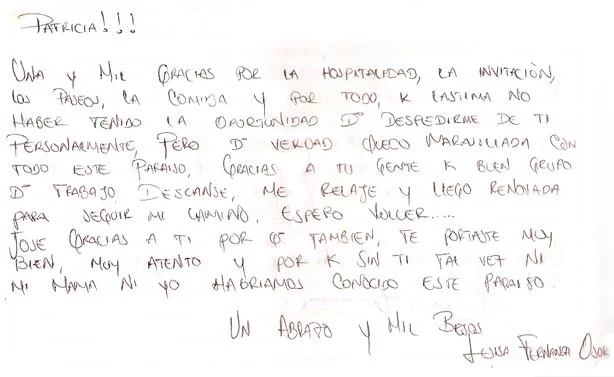 PATRICIA!!!
UNA Y MIL GRACIAS POR LA HOSPITALIDAD, LA INVITACIÓN,
LOS PASEOS, LA COMIDA Y POR TODO, K LASTIMA NO
HABER TENIDO LA OPORTUNIDAD D DESPEDIRME DE TI
PERSONALMENTE, PERO D VERDAD QUEDO MARAVILLADA CON
TODO ESTE PARAISO, GRACIAS A TU GENTE K BUEN GRUPO
D TRABAJO. DESCANSE, ME RELAJE Y LLEGO RENOVADA
PARA SEGUIR MI CAMINO, ESPERO VOLVER.....
JOSE GRACIAS A TI POR Q TAMBIEN, TE PORTASTE MUY
BIEN, MUY ATENTO Y POR K SIN TI TAL VEZ NI
MI MAMA NI YO HABRIAMOS CONOCIDO ESTE PARAISO.
UN ABRAZO Y MIL BESOS
LUISA FERNANDA